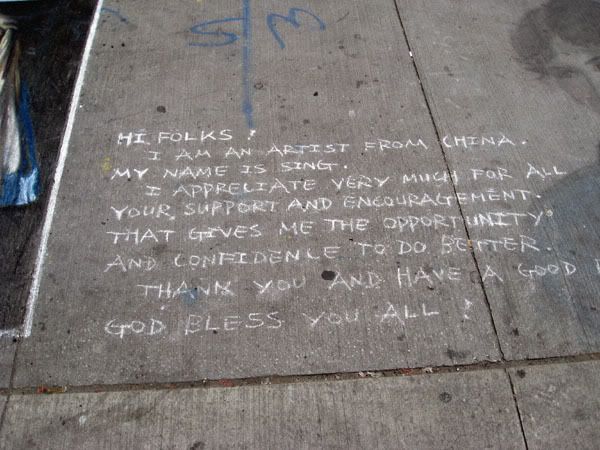 S M
HI FOLKS !
I AM AN ARTIST FROM CHINA.
MY NAME IS SING.
I APPRECIATE VERY MUCH FOR ALL
YOUR SUPPORT AND ENCOURAGEMENT.
THAT GIVES ME THE OPPORTUNITY
AND CONFIDENCE TO DO BETTER.
THANK YOU AND HAVE A GOOD
GOD BLESS YOU ALL !